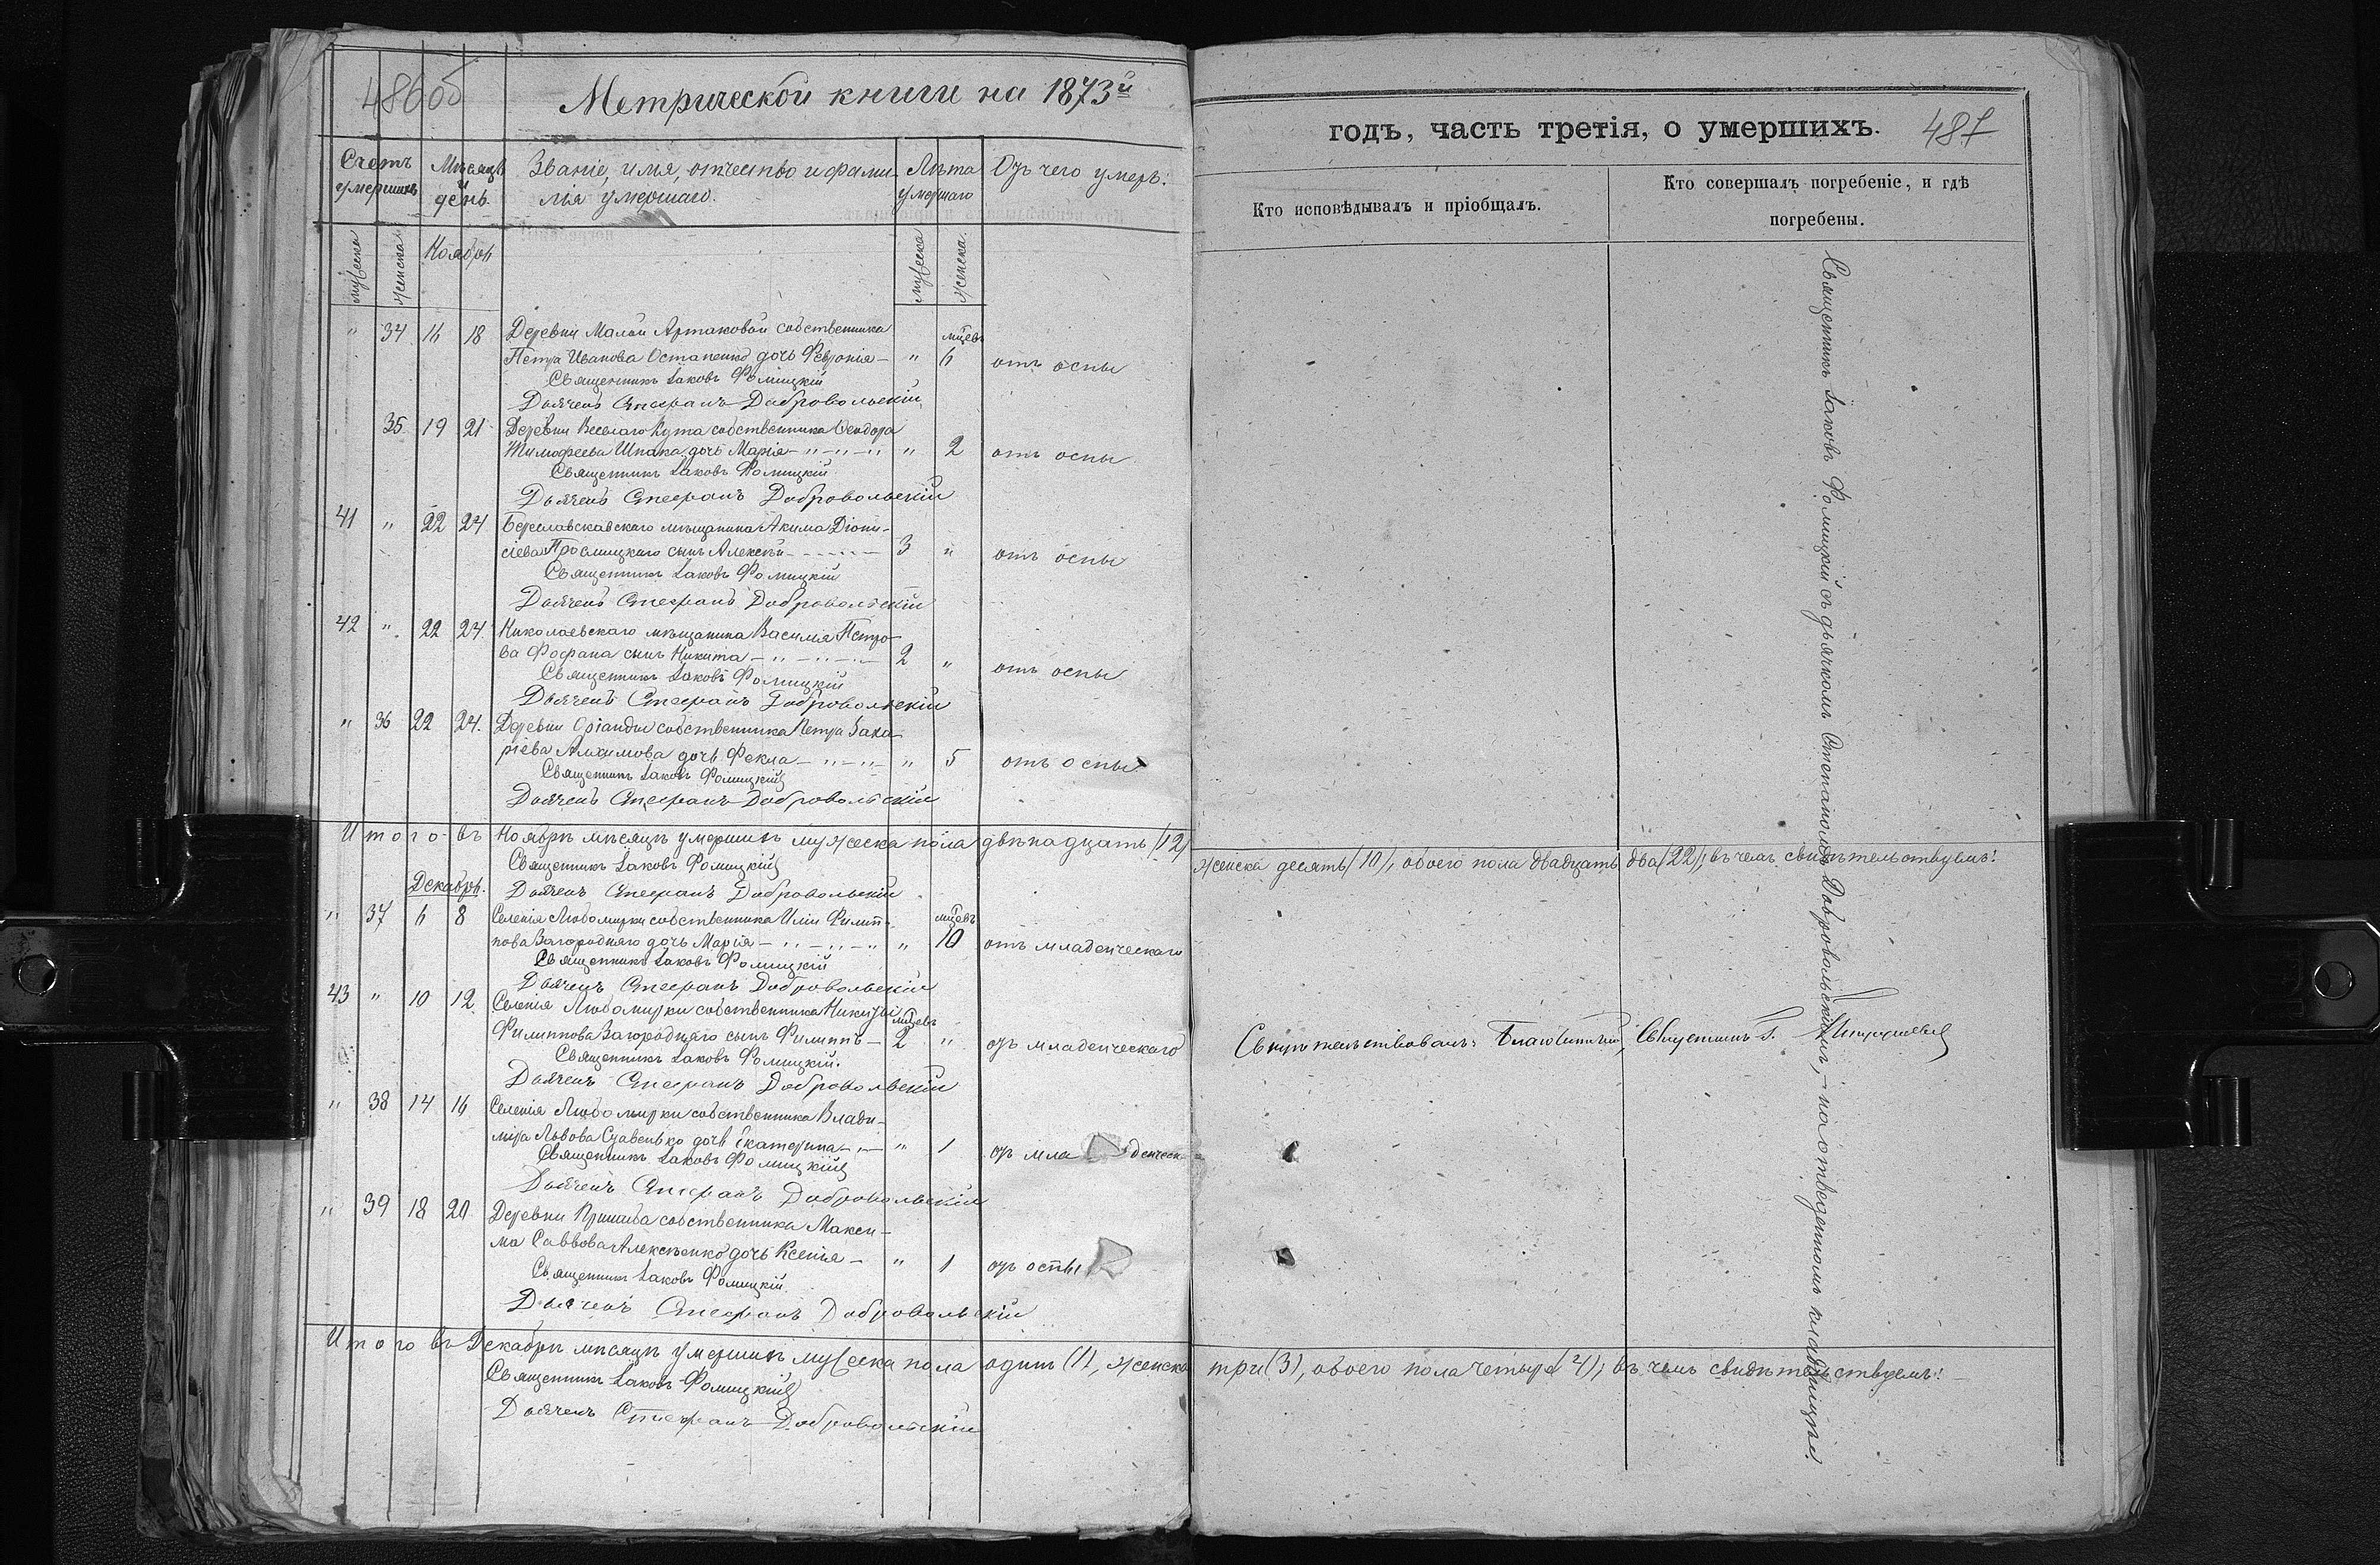 486об
Метрической книги на 1873й
Счетъ умершихъ
Мѣсяцъ и день.
Званіе, имя, отчество и фами-
лія умершаго.
Лѣта умершаго
Отъ чего умеръ.
мужеска
женска
Ноябрь
мужеска
женска.
" 34 16 18 Деревни Малой Артаковой собственника мцевъ
Петра Иванова Остапенко дочь Февронія — " 6 отъ оспы
Священникъ Іаковъ Фомицкій
Дьячекъ Стефанъ Добровольскій
35 19 21 Деревни Веселаго Кута собственника Ѳеодора
Тимофеева Шпака дочь Марія — " — " — " " 2 отъ оспы
Священникъ Іаковъ Фомицкій
Дьячекъ Стефанъ Добровольскій
41 " 22 24 мѣщанина Акима Діони-
сіева сынъ Алексѣй — 3 " отъ оспы
Священникъ Іаковъ Фомицкій
Дьячекъ Стефанъ Добровольскій
42 " 22 24 Николаевскаго мѣщанина Василія Петро-
ва Фофана сынъ Никита — " — " — 2 " отъ оспы
Священникъ Іаковъ Фомицкій
Дьячекъ Стефанъ Добровольскій
" 36 22 24. Деревни Оріанды собственника Петра Заха-
ріева дочь Фекла — " — " — " 5 отъ оспы
Священникъ Іаковъ Фомицкій
Дьячекъ Стефанъ Добровольскій
Итого въ Ноябрѣ мѣсяцѣ умершихъ мужеска пола двѣнадцать (12)
Священникъ Іаковъ Фомицкій
Дьячекъ Стефанъ Добровольскій
Декабрь.
" 37 6 8 Селенія Любомирки собственника Иліи Филип- мцевъ
пова Загородняго дочь Марія — " — " — " " 10 отъ младенческаго
Священникъ Іаковъ Фомицкій
Дьячекъ Стефанъ Добровольскій
43 " 10 12 Селенія Любомирки собственника Никиты мцевъ
Филиппова Загородняго сынъ Филиппъ — 2 " отъ младенческаго
Священникъ Іаковъ Фомицкій.
Дьячекъ Стефанъ Добровольскій
" 38 14 16 Селенія Любомирки собственника Влади-
міра Львова дочь Екатерина — " — " 1 отъ младенческ
Священникъ Іаковъ Фомицкій
Дьячекъ Стефанъ Добровольскій
" 39 18 20 Деревни Пришиба собственника Макси-
ма Саввова Алексѣенко дочь Ксенія — " 1 отъ оспы
Священникъ Іаковъ Фомицкій
Дьячекъ Стефанъ Добровольскій
Итого въ Декабрѣ мѣсяцѣ умершихъ мужеска пола одинъ (1), женска
Священникъ Іаковъ Фомицкій
Дьячекъ Стефанъ Добровольскій
годъ, часть третія, о умершихъ.
487
Кто исповѣдывалъ и пріобщалъ.
Кто совершалъ погребеніе, и гдѣ
погребены.
Священникъ Іаковъ Фомицкій съ дьячкомъ Стефаномъ Добровольскимъ, — на отведенномъ кладбищѣ.
женска десять (10), обоего пола двадцать два (22); въ чемъ свидѣтельствуемъ:
Свидѣтельствовалъ: Благочинный, Священникъ
три (3), обоего пола четыре (4); въ чемъ свидѣтельствуемъ: —